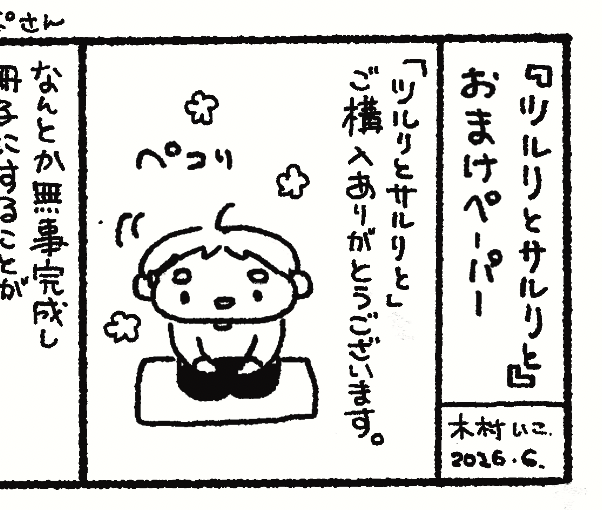 『ツルリとサルリと』
おまけペーパー
木村いこ.
2026.6.
「ツルリとサルリと」
ご購入ありがとうございます。
ペコリ
なんとか無事完成し
冊子にすることが
さん